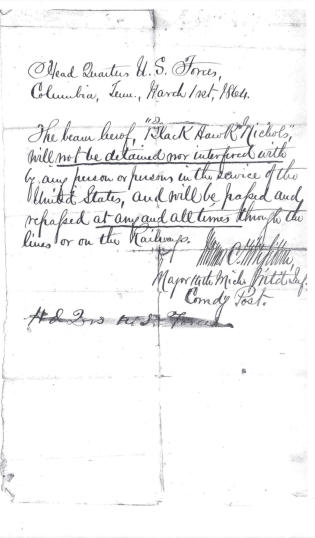 Head Quarters U. S. Forces,
Columbia, Tenn., March 1st, 1864.
The bearer hereof, "Black Hawk" Nichols,
will not be detained nor interfered with
by any person or persons in the service of the
United States, and will be passed and
repassed at any and all times through the
lines or on the Railways.
Major 14th Mich. Inf.
Comdg Post.
Hd Qrs U.S. Forces